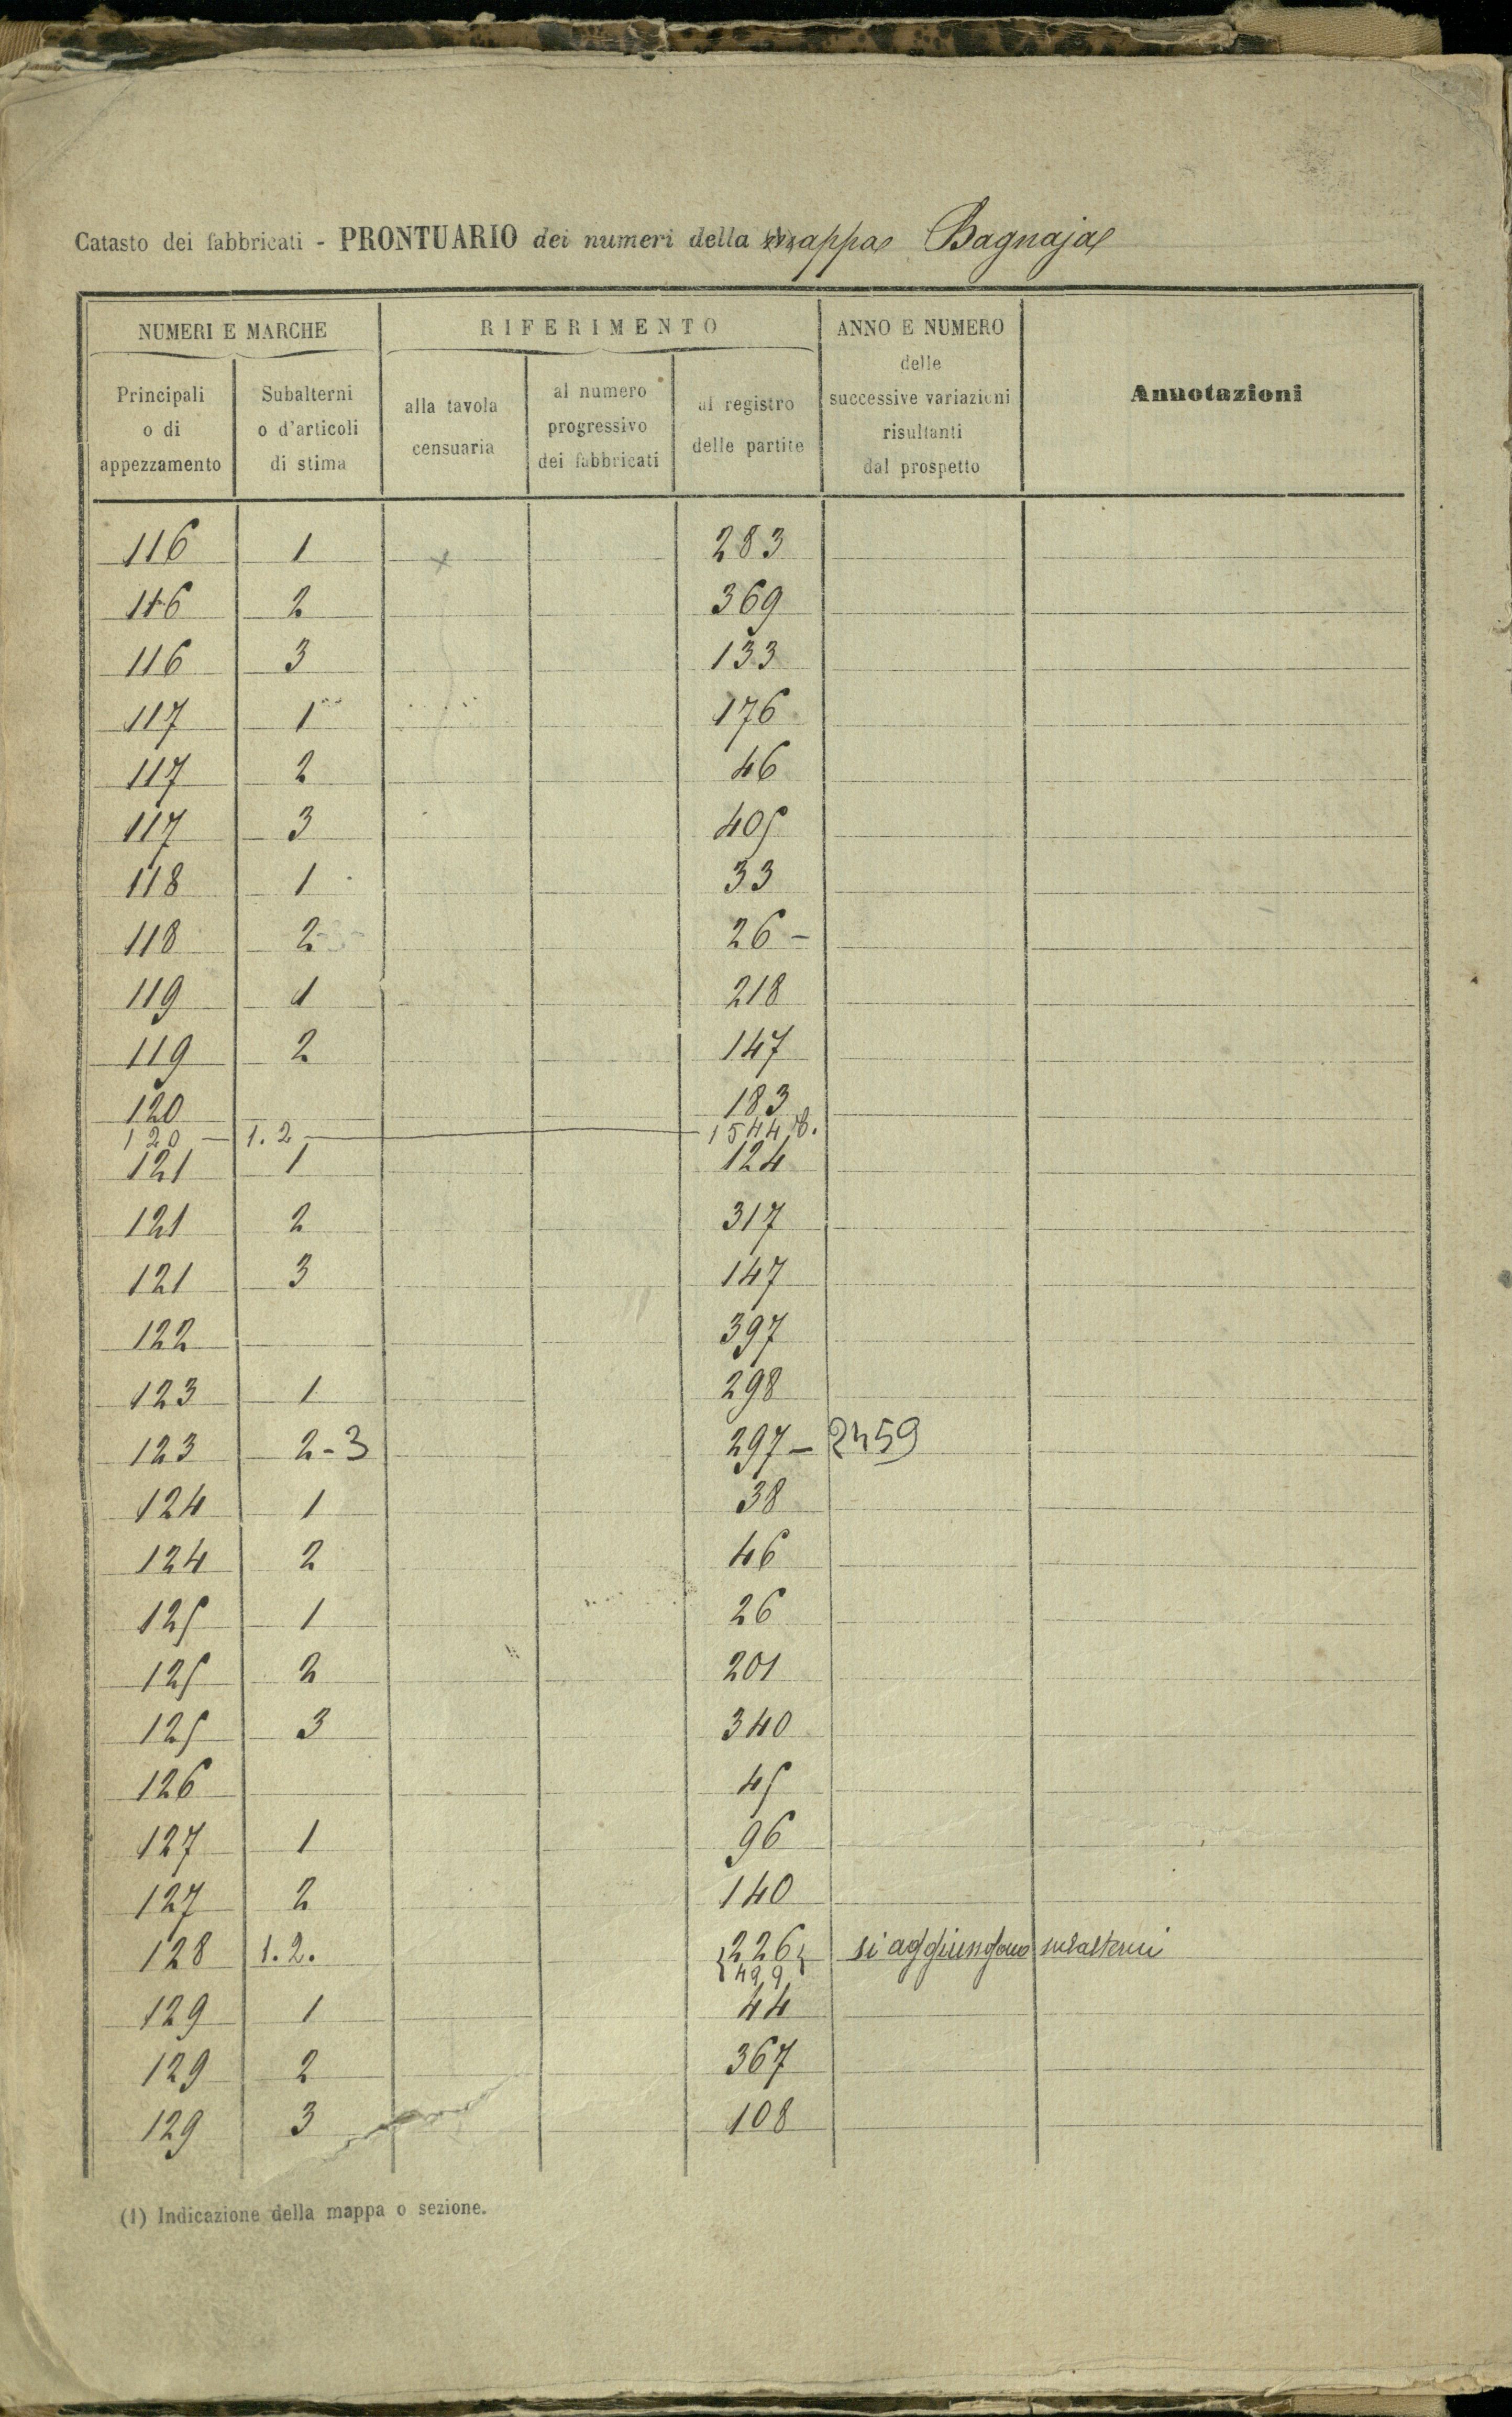 Catasto dei fabbricati - PRONTUARIO dei numeri della mappa Bagnaja
NUMERI E MARCHE
RIFERIMENTO
ANNO E NUMERO
delle
successive variazioni
risultanti
dal prospetto
Annotazioni
Principali
o di
appezzamento
Subalterni
o d'articoli
di stima
alla tavola
censuaria
al numero
progressivo
dei fabbricati
al registro
delle partite
116 1 283
116 2 369
116 3 133
117 1 176
117 2 46
117 3 405
118 1 33
118 2 26 -
119 1 218
119 2 147
120 183
120 - 1.2 - 1544
121 1 124
121 2 317
121 3 147
122 397
123 1 298
123 2-3 297 - 2459
124 1 38
124 2 46
125 1 26
125 2 201
125 3 340
126 45
127 1 96
127 2 140
128 1.2. {226} si aggiungono subalterni
{499
129 1 44
129 2 367
129 3 108
(1) Indicazione della mappa o sezione.